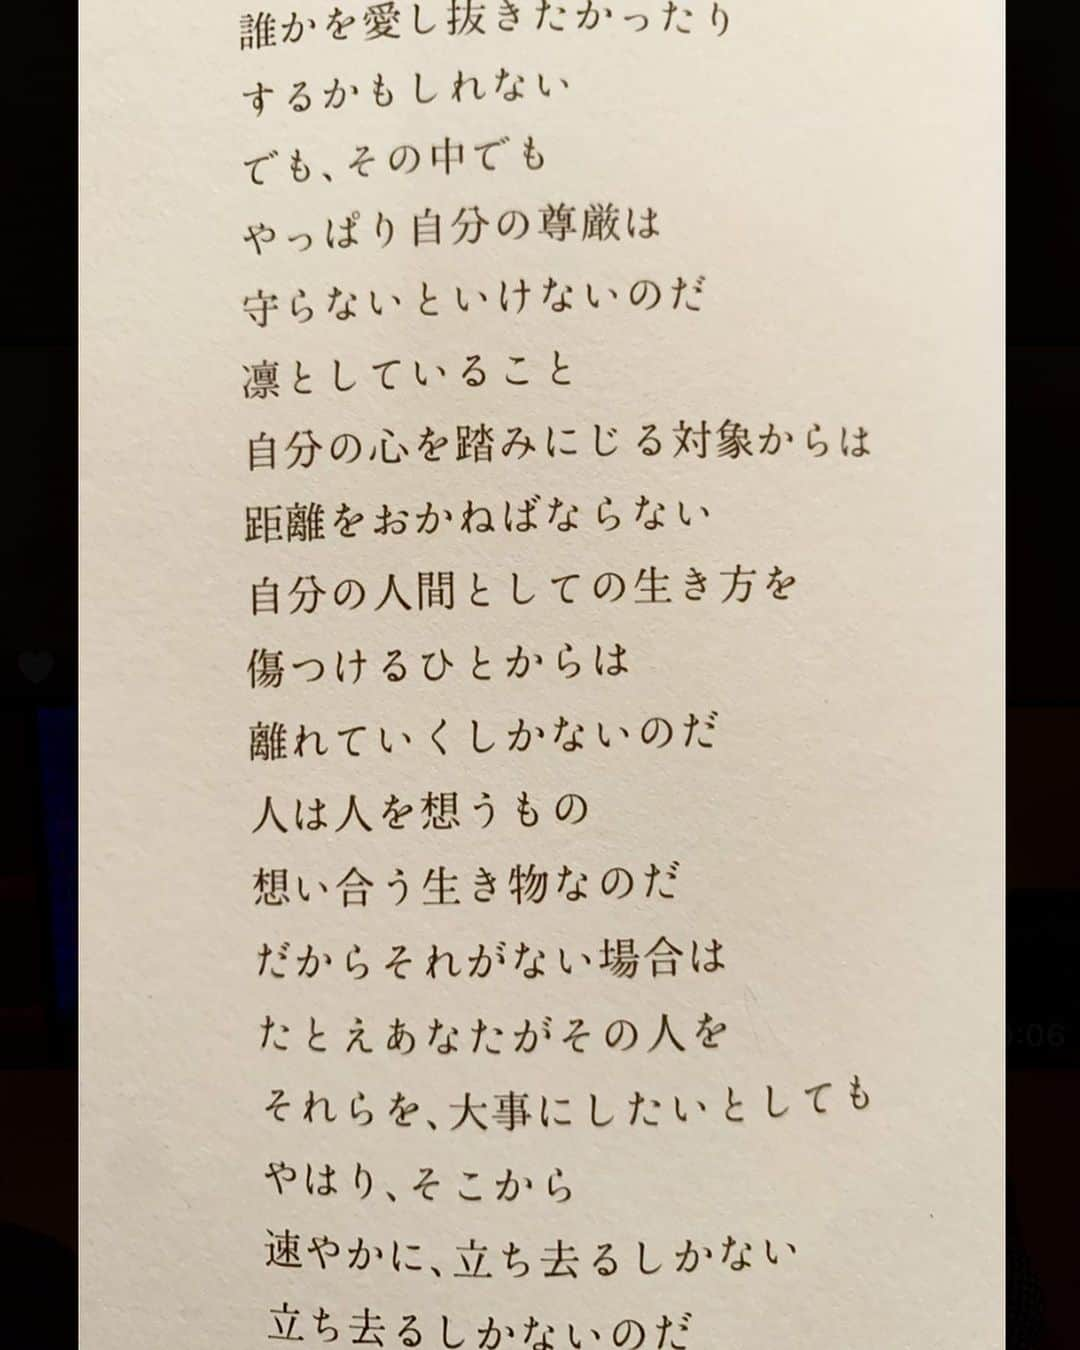 誰かを愛し抜きたかったり
するかもしれない
でも、その中でも
やっぱり自分の尊厳は
守らないといけないのだ
凛としていること
自分の心を踏みにじる対象からは
距離をおかねばならない
自分の人間としての生き方を
傷つけるひとからは
離れていくしかないのだ
人は人を想うもの
想い合う生き物なのだ
だからそれがない場合は
たとえあなたがその人を
それらを、大事にしたいとしても
やはり、そこから
速やかに、立ち去るしかない
立ち去るしかないのだ
:06